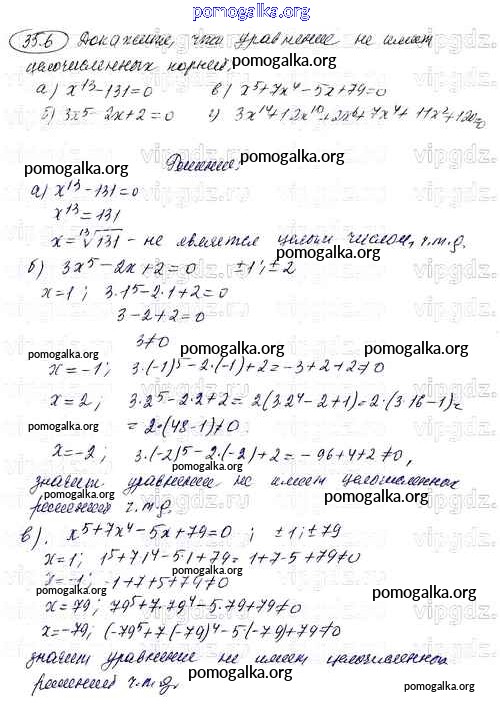 pomogalka.org
35.6 Докажите, что уравнение не имеет
целочисленных корней:
а) x¹³-131=0 в) x⁵+7x⁴-5x+79=0
б) 3x⁵-2x+2=0 г) 3x¹⁴+12x¹⁰+2x⁶+7x⁴+11x²+120=0
pomogalka.org pomogalka.org
Решение:
а) x¹³-131=0
x¹³=131
x=¹³√131 - не является целым числом, ч.т.д.
б) 3x⁵-2x+2=0 ±1; ±2
x=1; 3·1⁵-2·1+2=0
3-2+2=0
3≠0
pomogalka.org pomogalka.org
x=-1; 3·(-1)⁵-2·(-1)+2=-3+2+2≠0
x=2; 3·2⁵-2·2+2=2(3·2⁴-2+1)=2·(3·16-1)=
pomogalka.org
=2·(48-1)≠0.
x=-2; 3·(-2)⁵-2·(-2)+2=-96+4+2≠0,
pomogalka.org
значит уравнение не имеет целочисленных
решений ч.т.д.
в). x⁵+7x⁴-5x+79=0; ±1; ±79
x=1; 1⁵+7·1⁴-5·1+79=1+7-5+79≠0
pomogalka.org
x=-1; -1+7+5+79≠0
pomogalka.org
x=79; 79⁵+7·79⁴-5·79+79≠0
x=-79; (-79⁵+7(-79)⁴-5(-79)+79≠0
значит уравнение не имеет целочисленных
решений ч.т.д.
pomogalka.org pomogalka.org